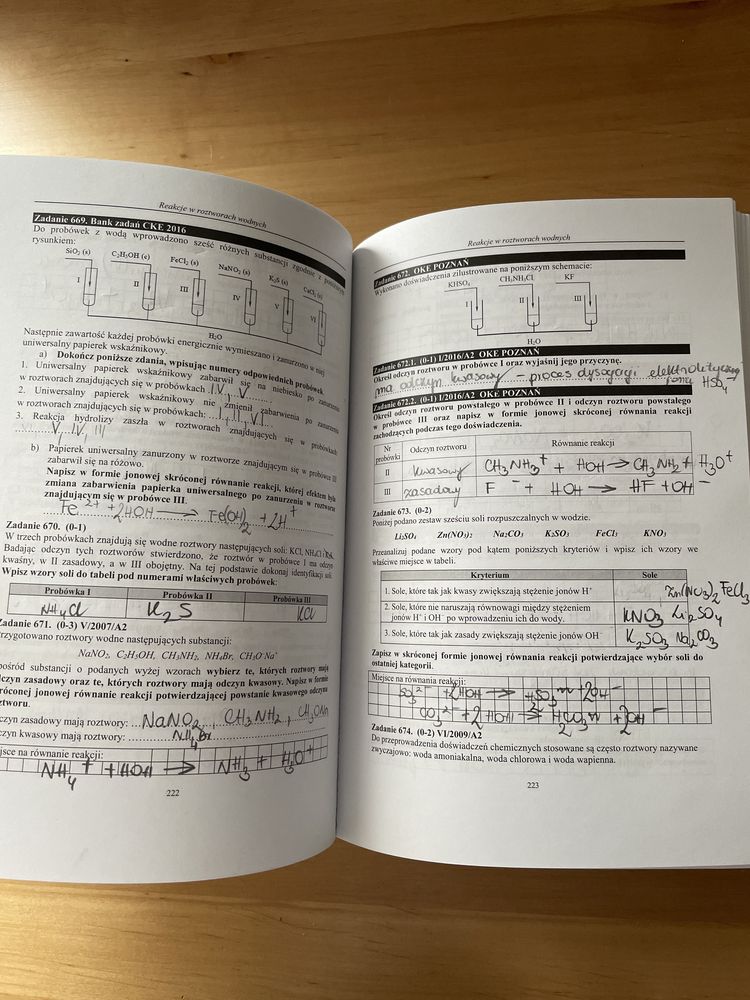 Reakcje w roztworach wodnych
Zadanie 669. Bank zadań CKE 2016
Do probówek z wodą wprowadzono sześć różnych substancji zgodnie z poniższym
rysunkiem:
SiO₂ (s) C₂H₅OH (c) FeCl₂ (s) NaNO₂ (s) K₂S (s) CaCl₂ (s)
I II III IV V VI
H₂O
Następnie zawartość każdej probówki energicznie wymieszano i zanurzono w niej
uniwersalny papierek wskaźnikowy.
a) Dokończ poniższe zdania, wpisując numery odpowiednich probówek.
1. Uniwersalny papierek wskaźnikowy zabarwił się na niebiesko po zanurzeniu
w roztworach znajdujących się w probówkach IV, V
2. Uniwersalny papierek wskaźnikowy nie zmienił zabarwienia po zanurzeniu
w roztworach znajdujących się w probówkach: I, II, VI
3. Reakcja hydrolizy zaszła w roztworach znajdujących się w probówkach
V, IV, III
b) Papierek uniwersalny zanurzony w roztworze znajdującym się w probówce III
zabarwił się na różowo.
Napisz w formie jonowej skróconej równanie reakcji, której efektem była
zmiana zabarwienia papierka uniwersalnego po zanurzeniu w roztworze
znajdującym się w probówce III.
Fe²⁺ + 2HOH → Fe(OH)₂ + 2H⁺
Zadanie 670. (0-1)
W trzech probówkach znajdują się wodne roztwory następujących soli: KCl, NH₄Cl i K₂S.
Badając odczyn tych roztworów stwierdzono, że roztwór w probówce I ma odczyn
kwaśny, w II zasadowy, a w III obojętny. Na tej podstawie dokonaj identyfikacji soli.
Wpisz wzory soli do tabeli pod numerami właściwych probówek:
Probówka I Probówka II Probówka III
NH₄Cl K₂S KCl
Zadanie 671. (0-3) V/2007/A2
Przygotowano roztwory wodne następujących substancji:
NaNO₂, C₂H₅OH, CH₃NH₂, NH₄Br, CH₃O⁻Na⁺
pośród substancji o podanych wyżej wzorach wybierz te, których roztwory mają
czyn zasadowy oraz te, których roztwory mają odczyn kwasowy. Napisz w formie
róconej jonowej równanie reakcji potwierdzającej powstanie kwasowego odczynu
ztworu.
czyn zasadowy mają roztwory: NaNO₂, CH₃NH₂, CH₃ONa
czyn kwasowy mają roztwory: NH₄Br
jsce na równanie reakcji:
NH₄⁺ + HOH → NH₃ + H₃O⁺
222
Reakcje w roztworach wodnych
Zadanie 672. OKE POZNAŃ
Wykonano doświadczenia zilustrowane na poniższym schemacie:
KHSO₄ CH₃NH₃Cl KF
I II III
H₂O
Zadanie 672.1. (0-1) I/2016/A2 OKE POZNAŃ
Określ odczyn roztworu w probówce I oraz wyjaśnij jego przyczynę.
ma odczyn kwasowy proces dysocjacji elektrolitycznej
jonu HSO₄⁻
Zadanie 672.2. (0-1) I/2016/A2 OKE POZNAŃ
Określ odczyn roztworu powstałego w probówce II i odczyn roztworu powstałego
w probówce III oraz napisz w formie jonowej skróconej równania reakcji
zachodzących podczas tego doświadczenia.
Nr probówki Odczyn roztworu Równanie reakcji
II kwasowy CH₃NH₃⁺ + HOH → CH₃NH₂ + H₃O⁺
III zasadowy F⁻ + HOH → HF + OH⁻
Zadanie 673. (0-2)
Poniżej podano zestaw sześciu soli rozpuszczalnych w wodzie.
Li₂SO₄ Zn(NO₃)₂ Na₂CO₃ K₂SO₃ FeCl₃ KNO₃
Przeanalizuj podane wzory pod kątem poniższych kryteriów i wpisz ich wzory we
właściwe miejsce w tabeli.
Kryterium Sole
1. Sole, które tak jak kwasy zwiększają stężenie jonów H⁺ Zn(NO₃)₂ FeCl₃
2. Sole, które nie naruszają równowagi między stężeniem
jonów H⁺ i OH⁻ po wprowadzeniu ich do wody. KNO₃ Li₂SO₄
3. Sole, które tak jak zasady zwiększają stężenie jonów OH⁻ K₂SO₃ Na₂CO₃
Zapisz w skróconej formie jonowej równania reakcji potwierdzające wybór soli do
ostatniej kategorii.
Miejsce na równania reakcji:
SO₃²⁻ + 2HOH → H₂SO₃ + 2OH⁻
CO₃²⁻ + 2HOH → H₂CO₃ + 2OH⁻
Zadanie 674. (0-2) VI/2009/A2
Do przeprowadzenia doświadczeń chemicznych stosowane są często roztwory nazywane
zwyczajowo: woda amoniakalna, woda chlorowa i woda wapienna.
223